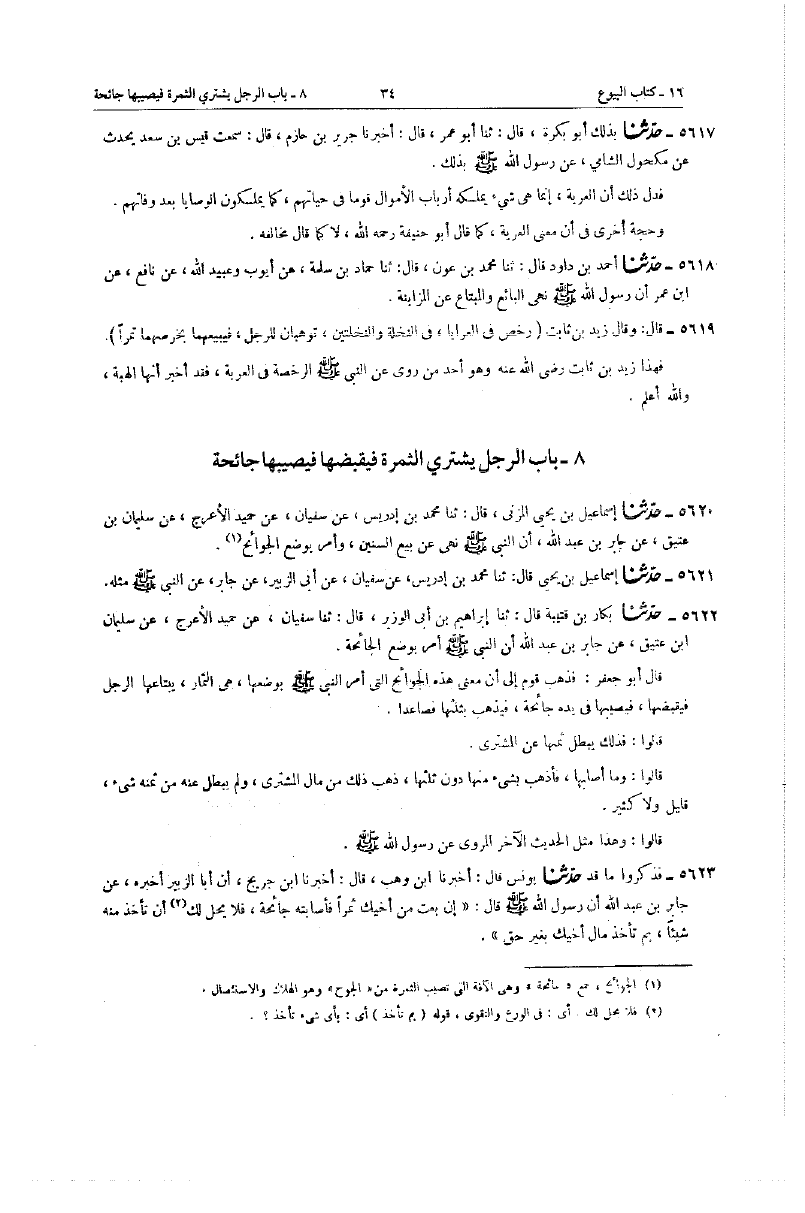 ١٦ - كتاب البيوع ٣٤ ٨ - باب الرجل يشتري الثمرة فيصيبها جائحة
٥٦١٧ - حدثنا بذلك أبو بكرة ، قال : ثنا أبو عمر ، قال : أخبرنا جرير بن حازم ، قال : سمعت قيس بن سعد يحدث
عن مكحول الشامي ، عن رسول الله ﷺ بذلك .
فدل ذلك أن العرية ، إنما هى شيء يملكه أرباب الأموال قوما فى حياتهم ، كما يملكون الوصايا بعد وفاتهم .
وحجة أخرى فى أن معنى العرية ، كما قال أبو حنيفة رحمه الله ، لا كما قال مخالفه .
٥٦١٨ - حدثنا أحمد بن داود قال : ثنا محمد بن عون ، قال: ثنا حماد بن سلمة ، عن أيوب وعبيد الله ، عن نافع ، عن
ابن عمر أن رسول الله ﷺ نهى البائع والمبتاع عن المزابنة .
٥٦١٩ - قال: وقال زيد بن ثابت ( رخص فى العرايا ، فى النخلة والنخلتين ، توهبان للرجل ، فيبيعهما بخرصهما تمراً ).
فهذا زيد بن ثابت رضى الله عنه وهو أحد من روى عن النبي ﷺ الرخصة فى العرية ، فقد أخبر أنها الهبة ،
والله أعلم .
٨ - باب الرجل يشتري الثمرة فيقبضها فيصيبها جائحة
٥٦٢٠ - حدثنا إسماعيل بن يحيى المزنى ، قال : ثنا محمد بن إدريس ، عن سفيان ، عن حميد الأعرج ، عن سليمان بن
عتيق ، عن جابر بن عبد الله ، أن النبي ﷺ نهى عن بيع السنين ، وأمر بوضع الجوائح(١) .
٥٦٢١ - حدثنا إسماعيل بن يحيى قال: ثنا محمد بن إدريس، عن سفيان ، عن أبى الزبير، عن جابر، عن النبي ﷺ مثله.
٥٦٢٢ - حدثنا بكار بن قتيبة قال : ثنا إبراهيم بن أبى الوزير ، قال : ثنا سفيان ، عن حميد الأعرج ، عن سليمان
ابن عتيق ، عن جابر بن عبد الله أن النبي ﷺ أمر بوضع الجائحة .
قال أبو جعفر : فذهب قوم إلى أن معنى هذه الجوائح التى أمر النبي ﷺ بوضعها ، هى الثمار ، يبتاعها الرجل
فيقبضها ، فيصيبها فى يده جائحة ، فيذهب بثلثها فصاعدا .
قالوا : فذلك يبطل ثمنها عن المشترى .
قالوا : وما أصابها ، فأذهب بشىء منها دون ثلثها ، ذهب ذلك من مال المشترى ، ولم يبطل عنه من ثمنه شىء ،
قليل ولا كثير .
قالوا : وهذا مثل الحديث الآخر المروى عن رسول الله ﷺ .
٥٦٢٣ - فذكروا ما قد حدثنا يونس قال : أخبرنا ابن وهب ، قال : أخبرنا ابن جريج ، أن أبا الزبير أخبره ، عن
جابر بن عبد الله أن رسول الله ﷺ قال : « إن بعت من أخيك ثمراً فأصابته جائحة ، فلا يحل لك(٢) أن تأخذ منه
شيئاً ، بم تأخذ مال أخيك بغير حق » .
(١) الجوائح ، جمع « جائحة » وهى الآفة التى تصيب الثمرة من « الجوح » وهو الهلاك والاستئصال .
(٢) فلا يحل لك . أى : فى الورع والتقوى ، قوله ( بم تأخذ ) أى : بأى شىء تأخذ ؟ .